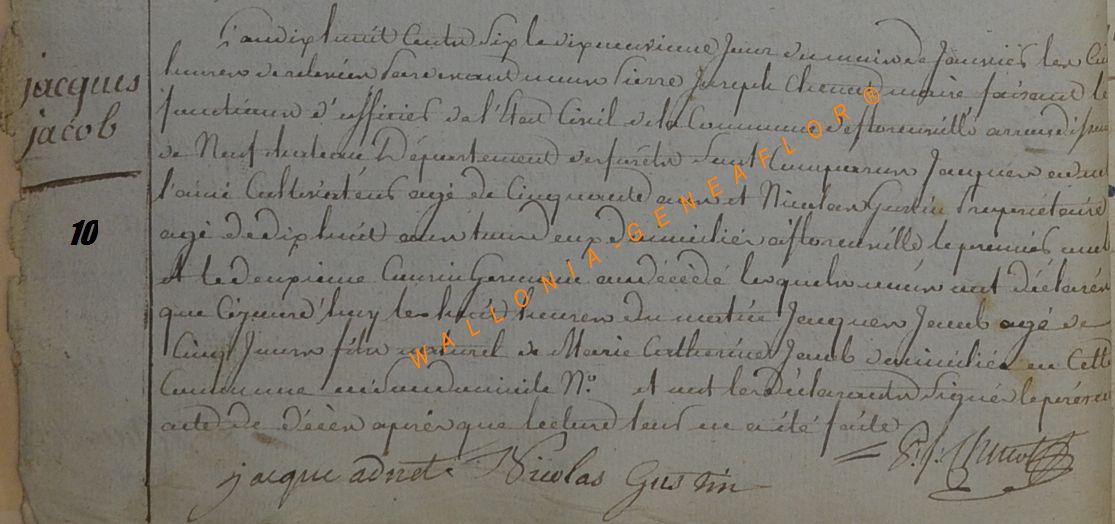 jacques
jacob
10
L'an dix huit Cents Six le dix neuvieme Jour du mois de Janvier les Cinq
heures de relevée Pardevant nous Pierre Joseph maire faisant les
fonctions d'officier de l'Etat Civil de la Commune de florenville arrondiss
de Neufchateau Département des forêts Sont Comparus Jacques adnet
l'ainé Cultivateur agé de Cinquante ans et Nicolas Gustin Propriétaire
agé de dix huit ans tous deux domiciliés a florenville le premier oncle
et le deuxieme Cousin Germain au décédé lesquels nous ont déclaré
que Cejourd'huy les huit heures du matin Jacques Jacob agé de
Cinq Jours fils naturel de Marie Catherine Jacob domiciliée en Cette
Commune domicile No. et ont les déclarants Signé le présent
acte de décès après que lecture leur en a été faite
jacque adnet Nicolas Gustin P. J.
WALLONIA-GENEAFLOR®